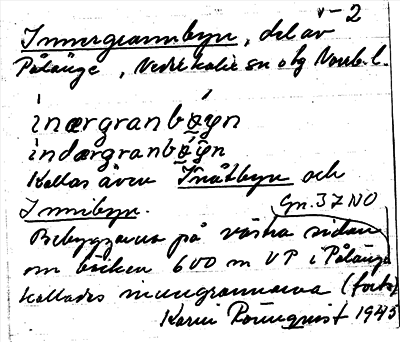 v-2
Innergrannbyn, del av
Pålänge, Nederkalix sn o lg Norrb. l.
inærgranbǿyn
indærgranbǿyn
Kallas även Inåtbyn och
Innibyn.
Gn. 37 NO
Bebyggarna på västra sidan
om bäcken 600 m VP i Pålänge
kallades innergrannarna (forts)
Karin Rönnqvist 1945